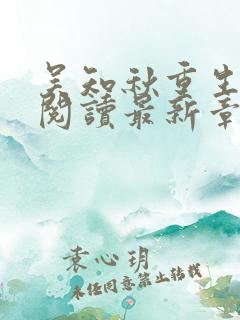 吴知秋重生
閱讀最新章
袁心玥
未经同意禁止转载